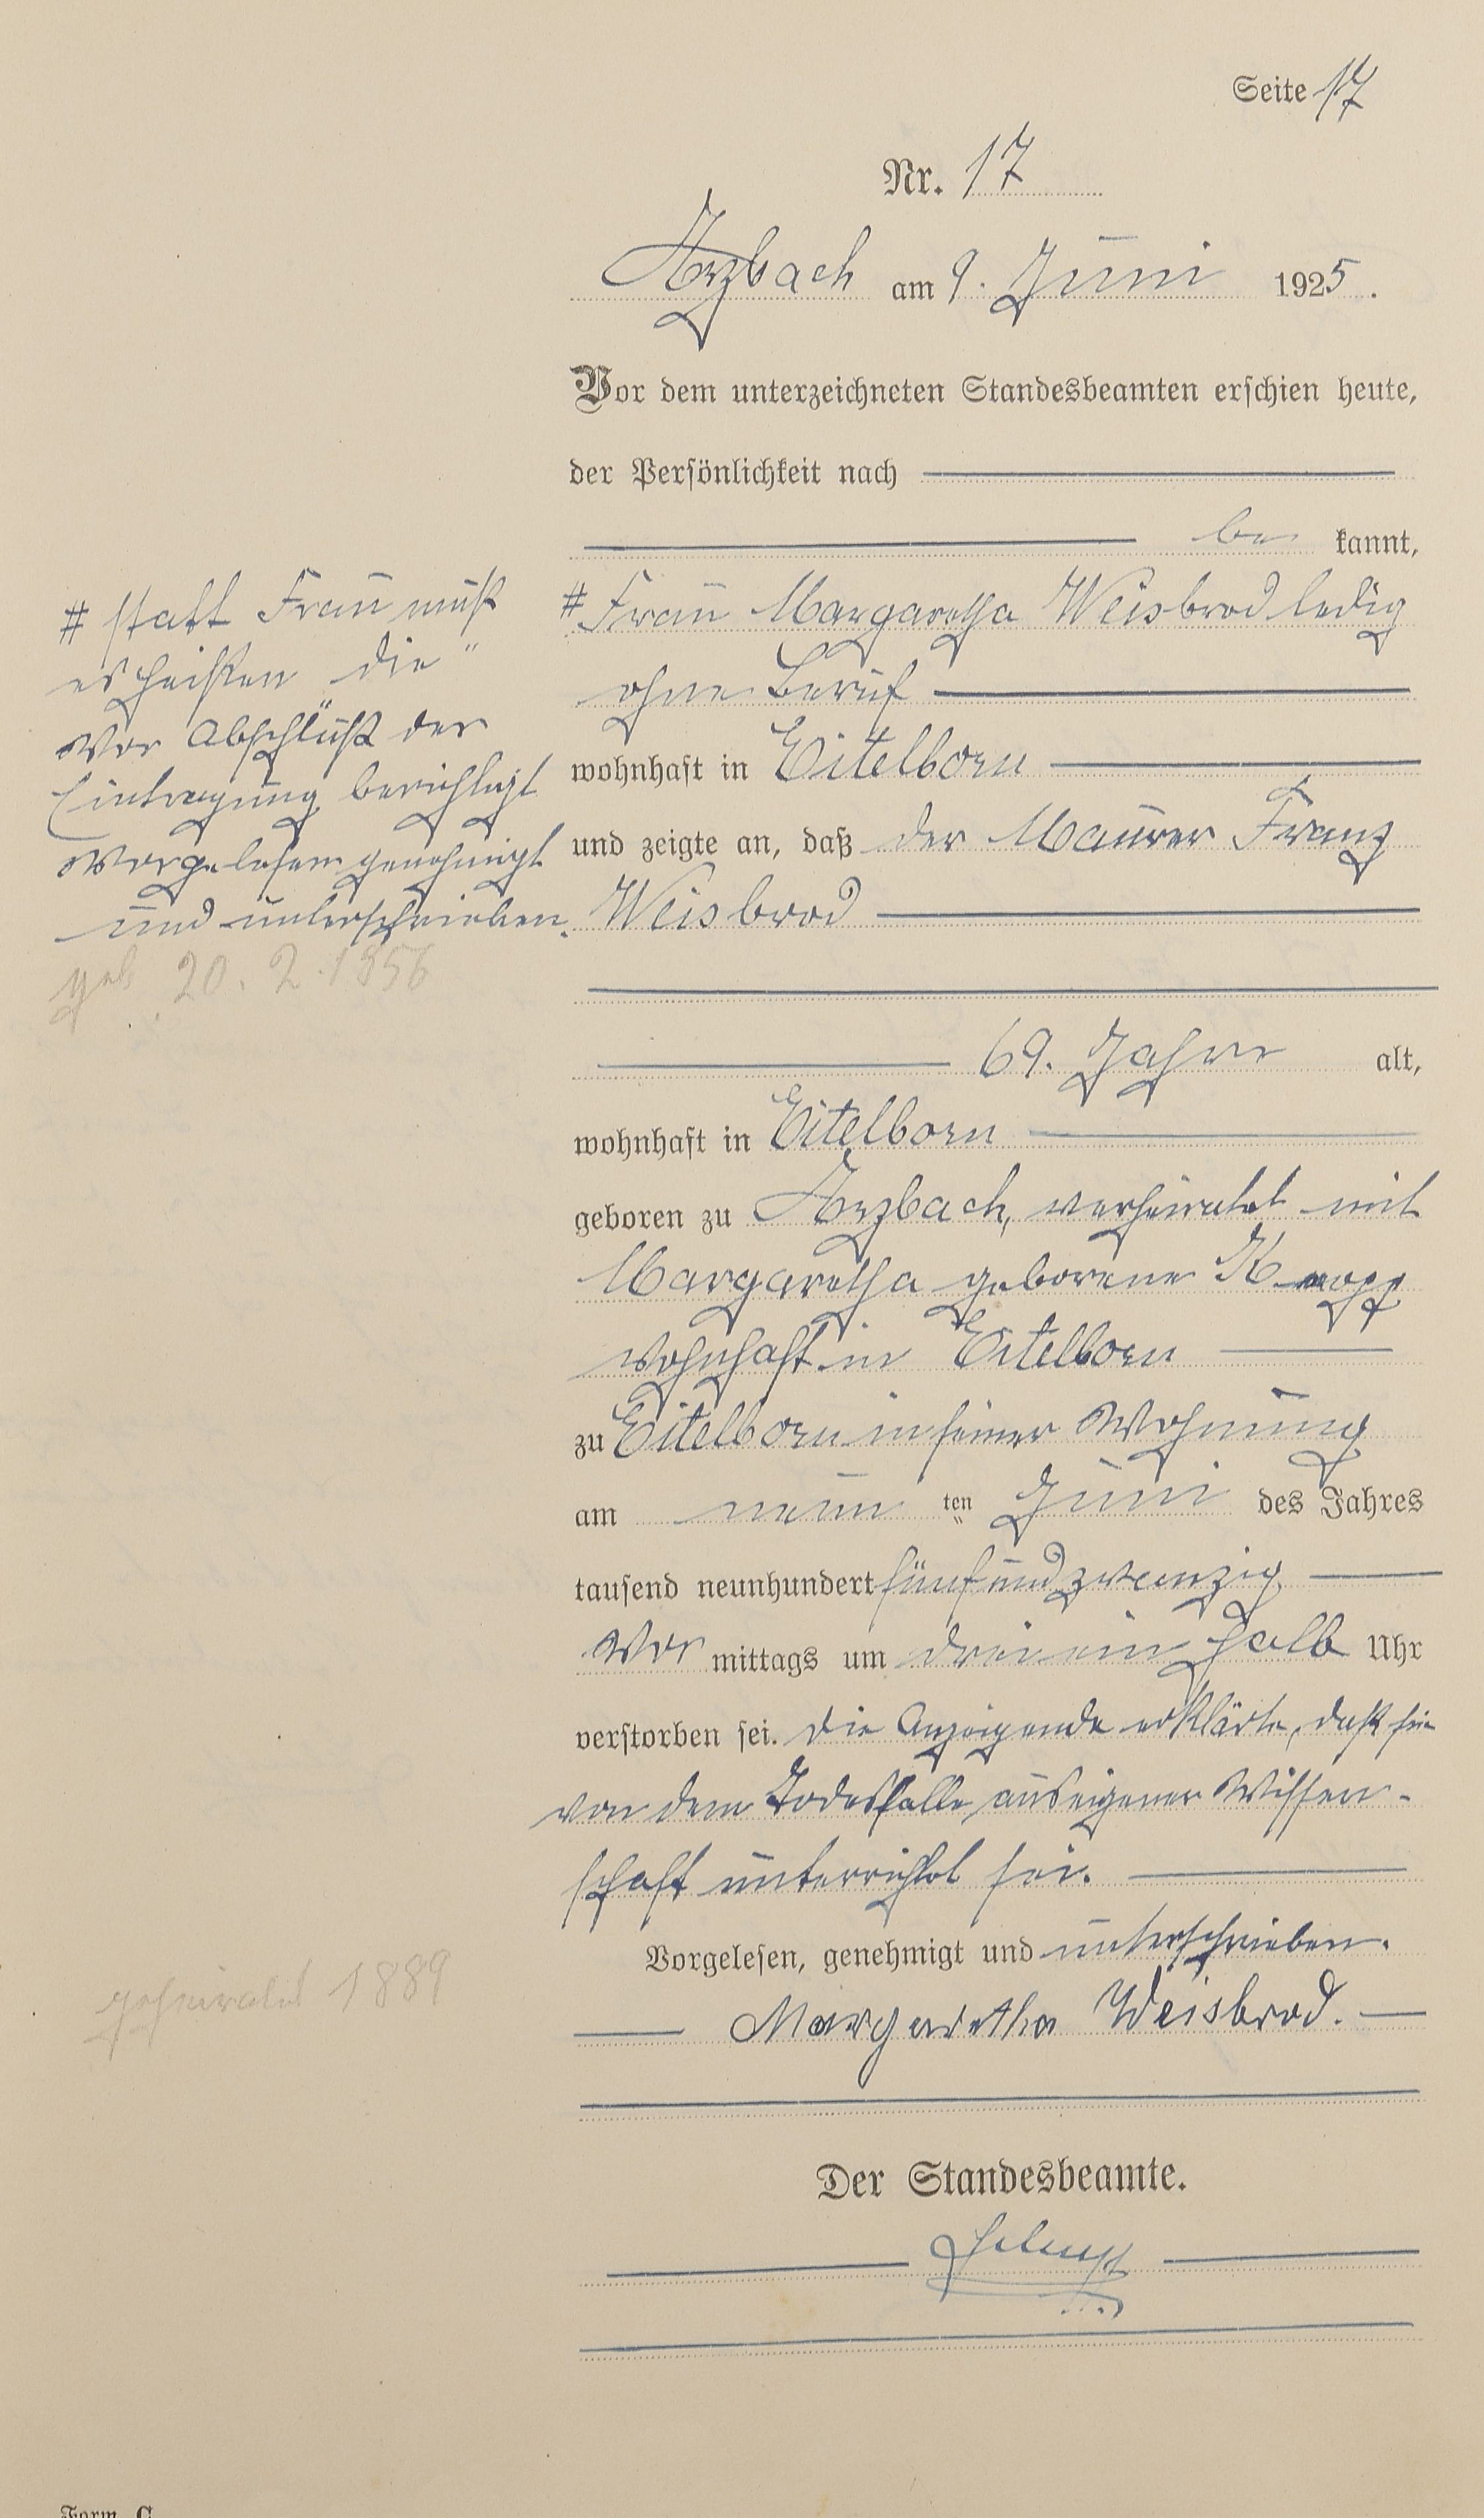 Seite 17
Nr. 17
Arzbach am 9. Juni 1925.
Vor dem unterzeichneten Standesbeamten erschien heute,
der Persönlichkeit nach
be kannt,
# Frau Margaretha Weisbrod ledig
ohne Beruf
wohnhaft in Eitelborn
und zeigte an, daß der Maurer Franz
Weisbrod
69. Jahre alt,
wohnhaft in Eitelborn
geboren zu Arzbach, verheiratet mit
Margaretha geborene Knopp
wohnhaft in Eitelborn
zu Eitelborn in seiner Wohnung
am neun ten Juni des Jahres
tausend neunhundert fünfundzwanzig
Vor mittags um drei ein halb Uhr
verstorben sei. Die Anzeigende erklärte, daß sie
von dem Todesfalle aus eigener Wissen-
schaft unterrichtet sei.
Vorgelesen, genehmigt und unterschrieben.
Margaretha Weisbrod.
Der Standesbeamte.
# statt Frau muß
es heißen "die"
Vor Abschluß der
Eintragung berichtigt
Vorgelesen genehmigt
und unterschrieben.
geb. 20. 2. 1856
geheiratet 1889
Form. C